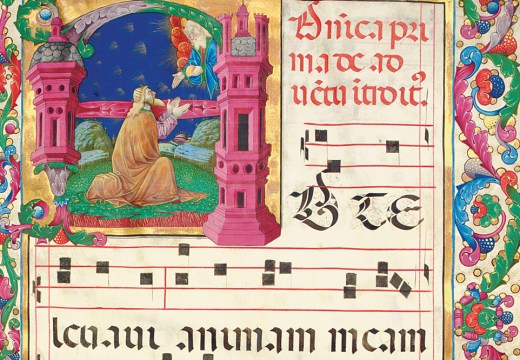 Dñica pri
ma de ad
uẽtu ĩtroitꝰ.
D TE
leuaui animam meam